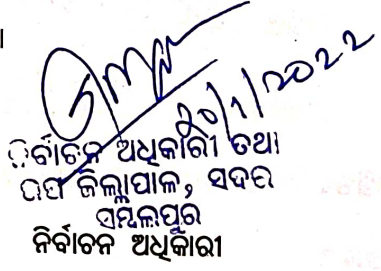 20/1/2022
ନିର୍ବାଚନ ଅଧିକାରୀ ତଥା
ଉପ ଜିଲ୍ଲାପାଳ, ସଦର
ସମ୍ବଲପୁର
ନିର୍ବାଚନ ଅଧିକାରୀ